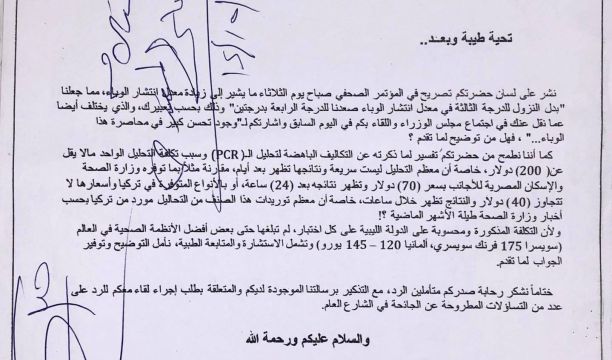 تحية طيبة وبعـد..
نشر على لسان حضرتكم تصريح في المؤتمر الصحفي صباح يوم الثلاثاء ما يشير إلى زيادة معدل انتشار الوباء، مما جعلنا
"بدل النزول للدرجة الثالثة في معدل انتشار الوباء صعدنا للدرجة الرابعة بدرجتين" وذلك بحسب تعبيرك، والذي يختلف أيضا
عما نقل عنك في اجتماع مجلس الوزراء واللقاء بكم في اليوم السابق واشارتكم لـ"وجود تحسن كبير في محاصرة هذا
الوباء..." ، فهل من توضيح لما تقدم ؟
كما أننا نطمح من حضرتكم تفسير لما ذكرته عن التكاليف الباهضة لتحليل الـ(PCR) وسبب تكلفة التحليل الواحد مالا يقل
عن (200) دولار، خاصة أن معظم التحليل ليست سريعة ونتائجها تظهر بعد أيام، مقارنة مثلا بما توفره وزارة الصحة
والإسكان المصرية للأجانب بسعر (70) دولار وتظهر نتائجه بعد (24) ساعة، أو بالأنواع المتوفرة في تركيا وأسعارها لا
تتجاوز (40) دولار والنتائج تظهر خلال ساعات، خاصة أن معظم توريدات هذا الصنف من التحاليل مورد من تركيا بحسب
أخبار وزارة الصحة طيلة الأشهر الماضية ؟!
ولأن التكلفة المذكورة ومحسوبة على الدولة الليبية على كل اختبار، لم تبلغها حتى بعض أفضل الأنظمة الصحية في العالم
(سويسرا 175 فرنك سويسري، ألمانيا 120 – 145 يورو) وتشمل الاستشارة والمتابعة الطبية، نأمل التوضيح وتوفير
الجواب لما تقدم.
ختاماً نشكر رحابة صدركم متأملين الرد، مع التذكير برسالتنا الموجودة لديكم والمتعلقة بطلب إجراء لقاء معكم للرد على
عدد من التساؤلات المطروحة عن الجائحة في الشارع العام.
والسلام عليكم ورحمة الله